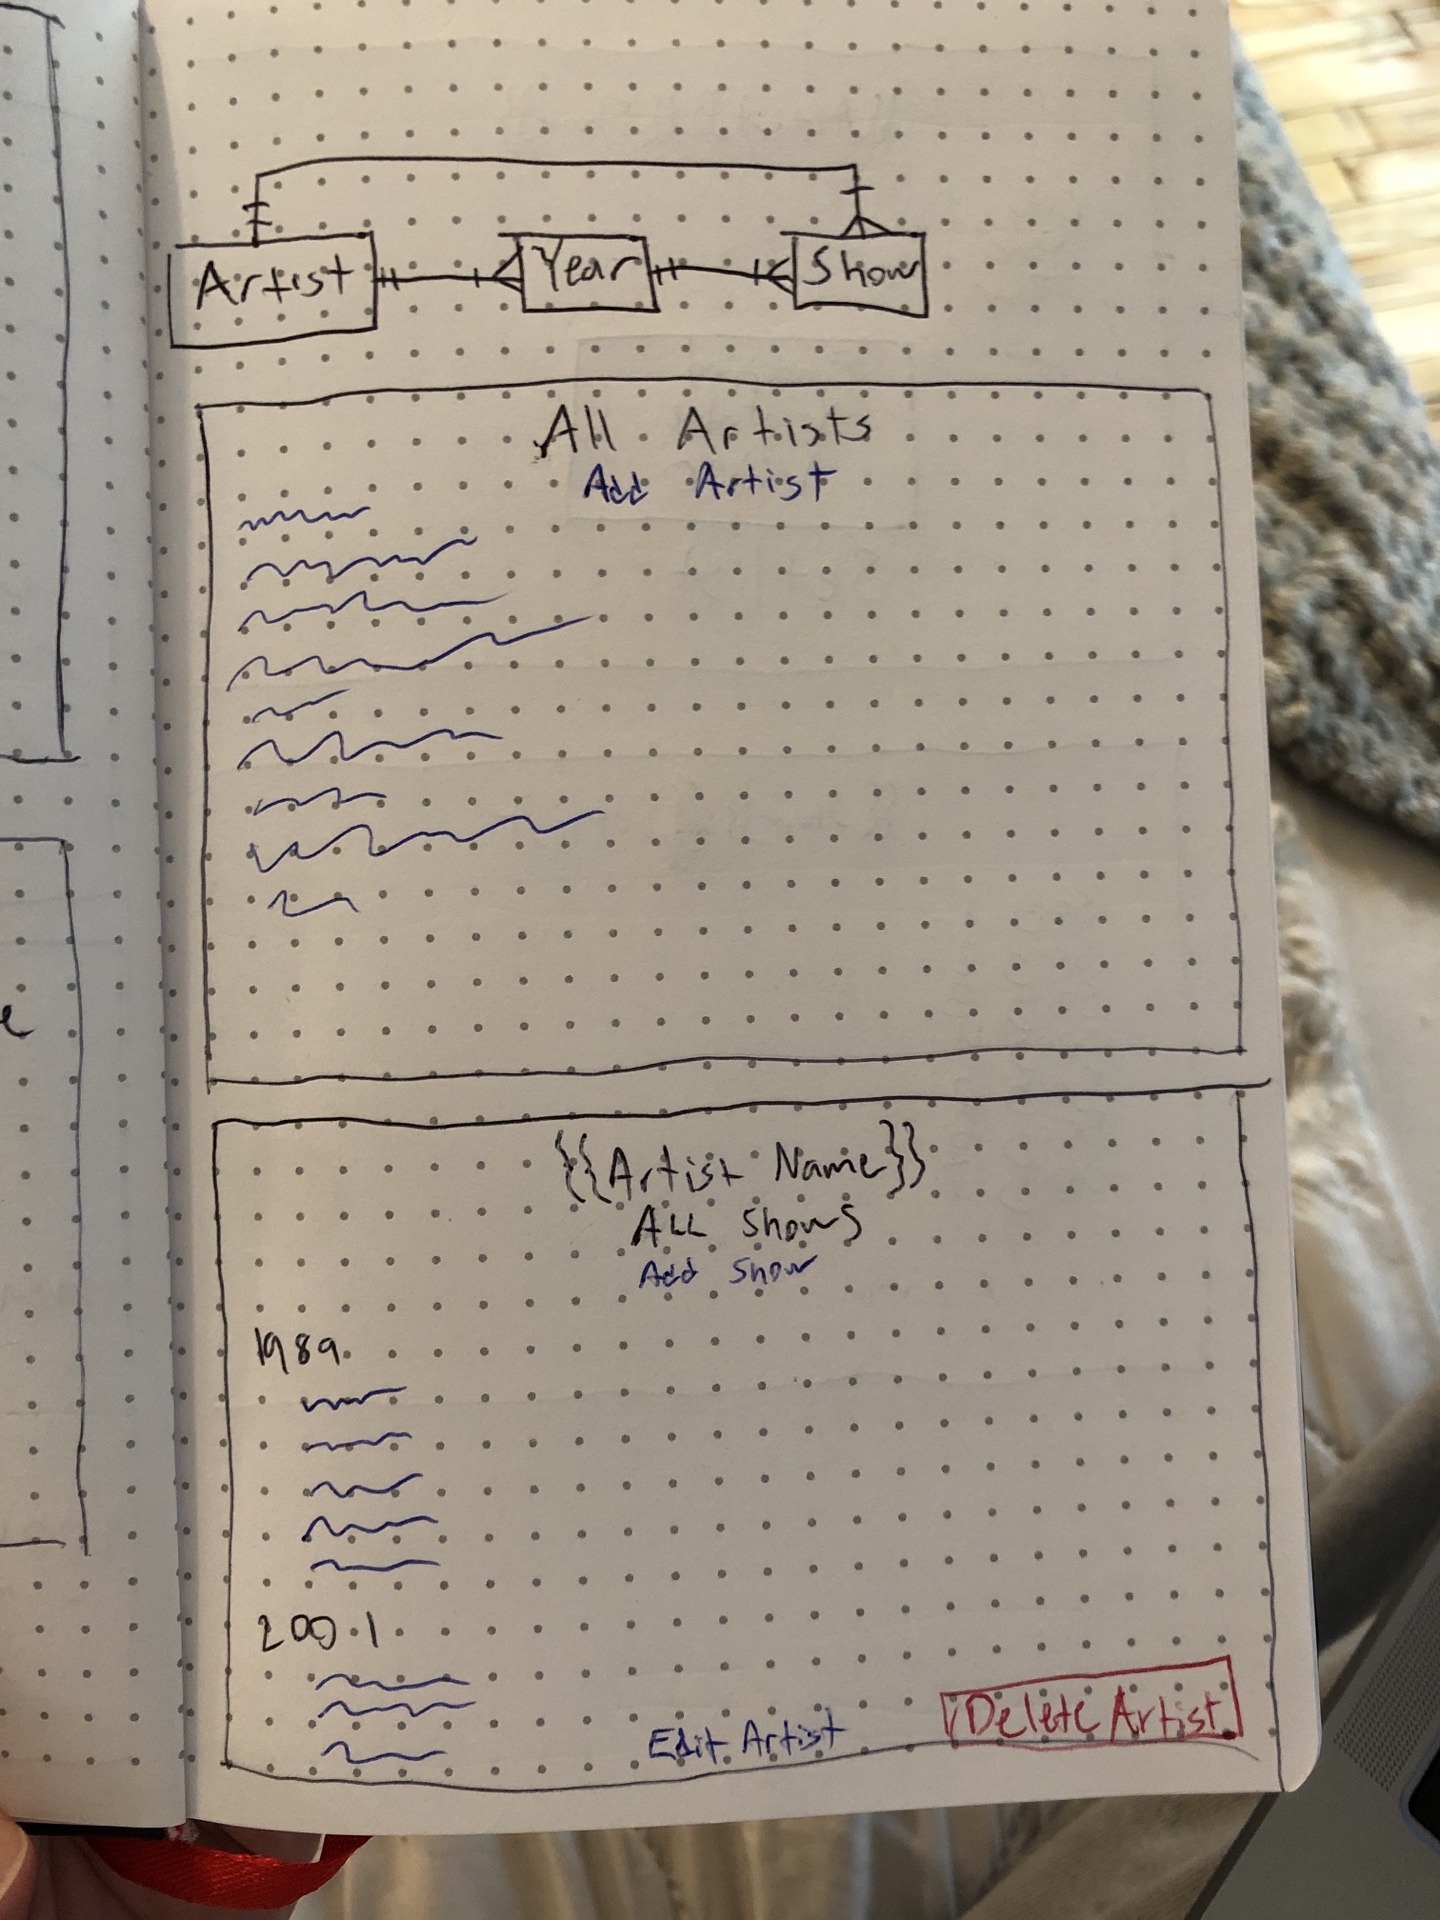 Artist Year Show
All Artists
Add Artist
{{Artist Name}}
ALL Shows
Add Show
1989
2001
Edit Artist
Delete Artist
e